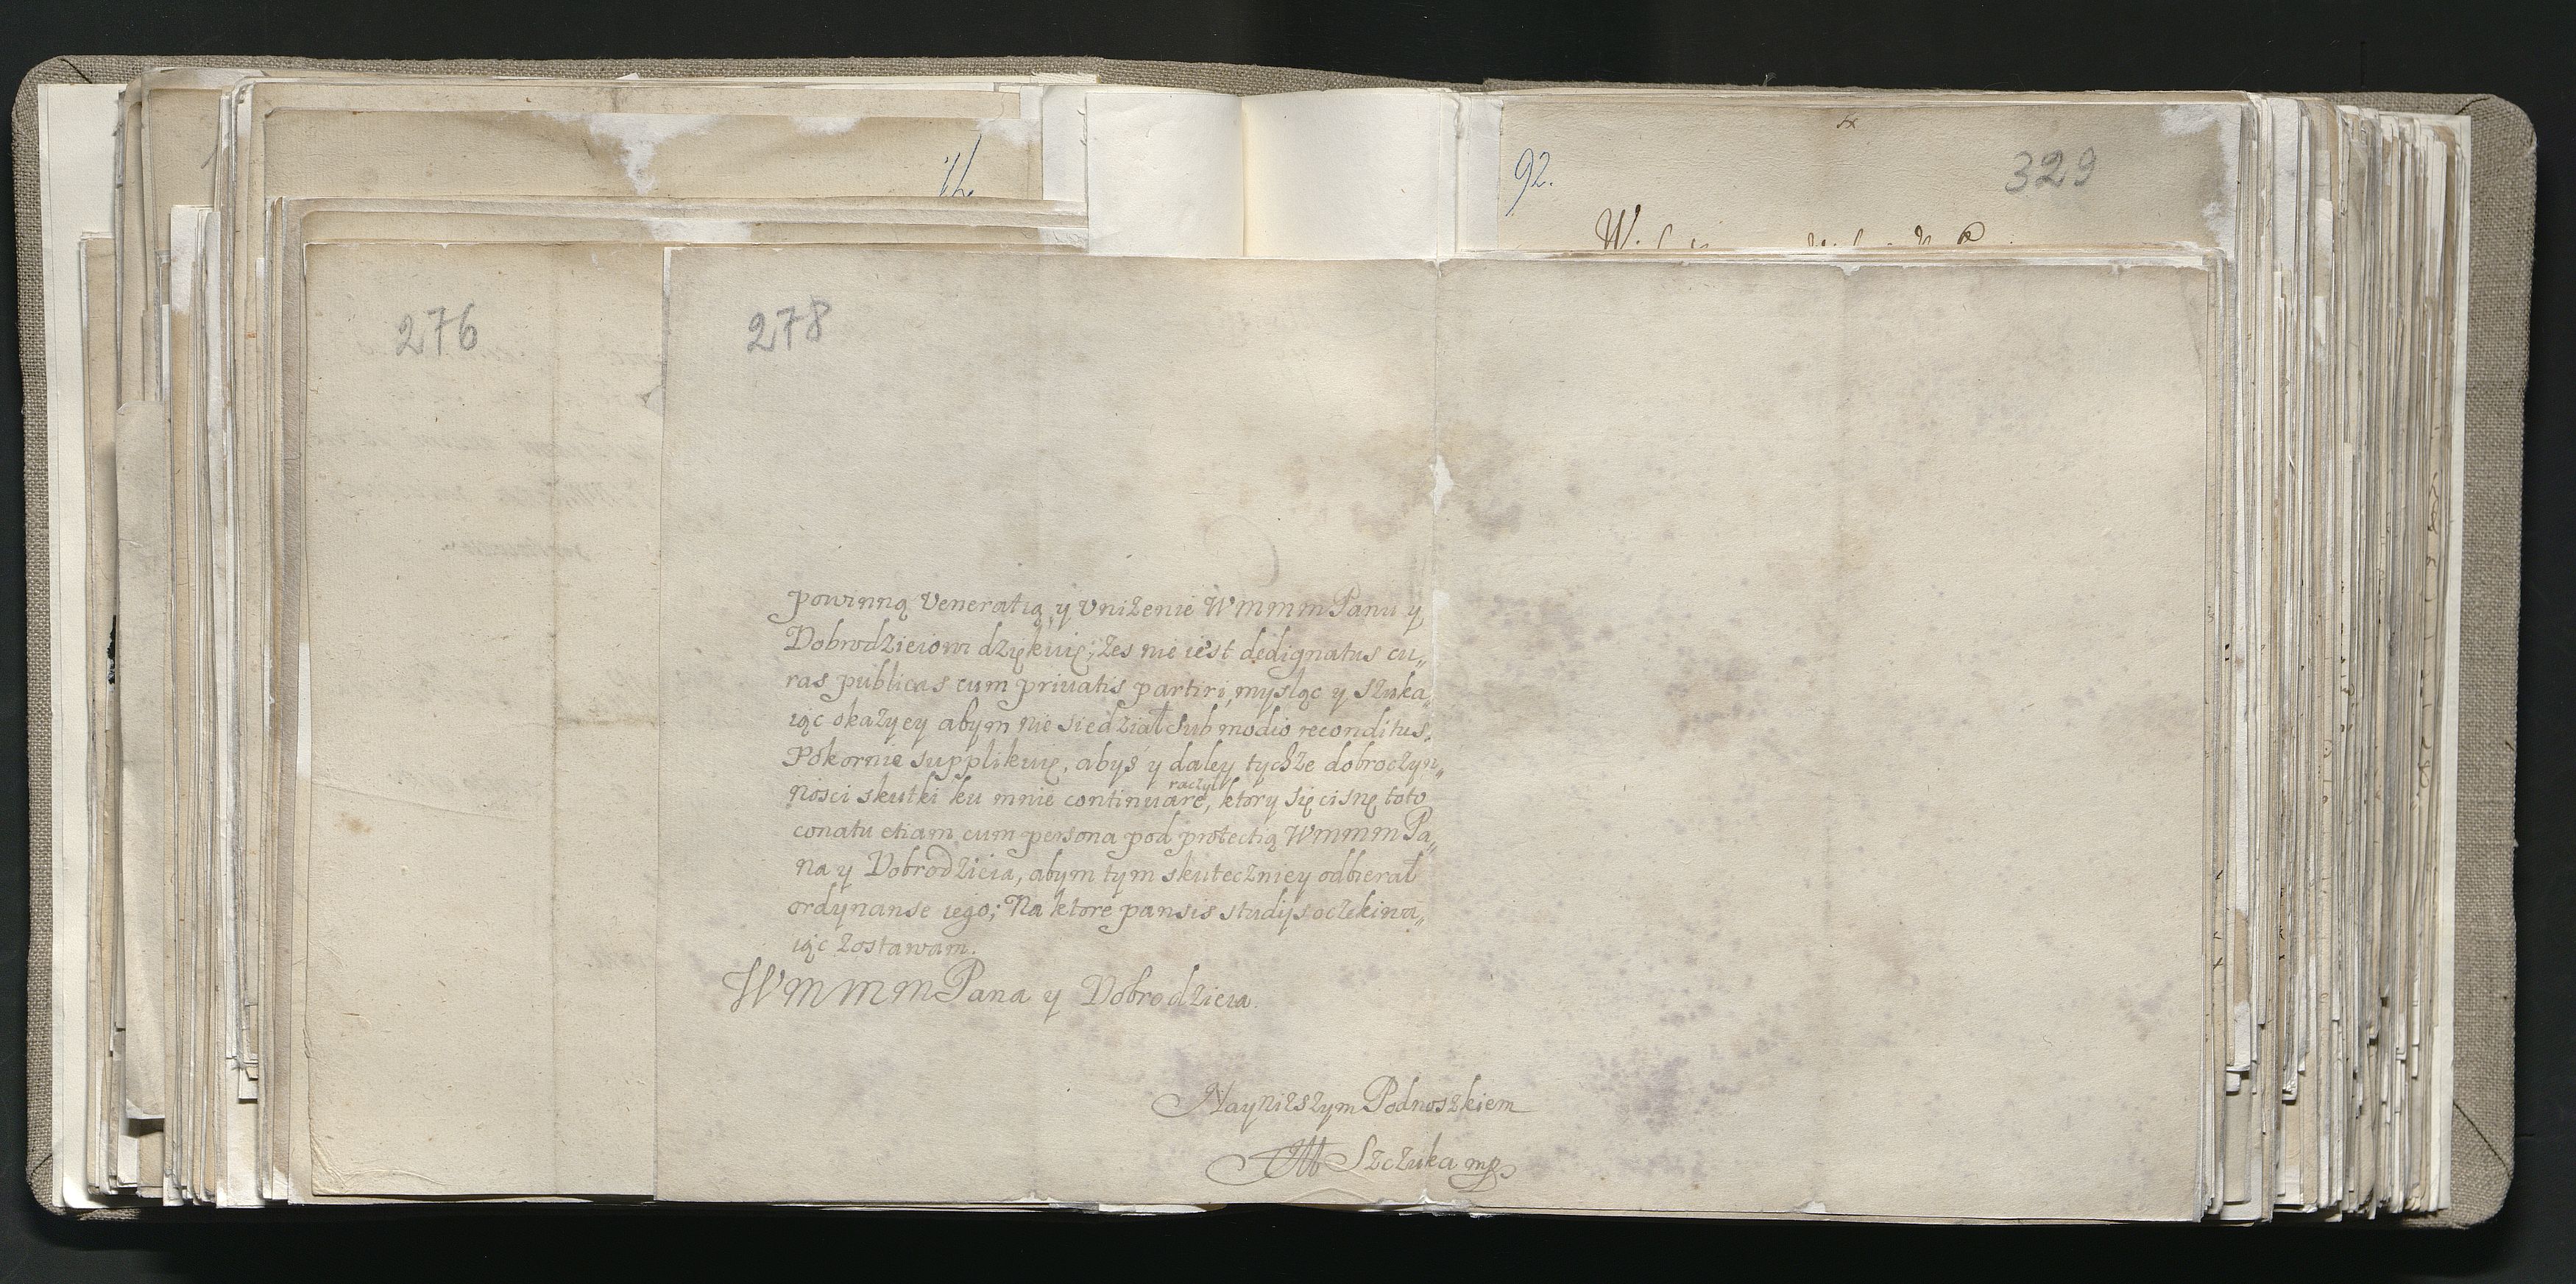 92.
329
276
278
powinną Veneratią y Vniżenie WmmmPanu y
Dobrodzieiowi dziękuię; żes nie iest dedignatus cu„
ras publicas cum priuatis partiri, mysląc y szuka„
iąc okazyey abym nie siedział sub modio reconditus.
Pokornie supplikuię, abyś y daley tychże dobroczyn„
raczyłś
nosci skutki ku mnie continuare, ktory się cisnę toto
conatu etiam cum persona pod protectią WmmmPa„
na y Dobrodzieia, abym tym skuteczniey odbierał
ordynanse iego; Na ktore pansis studijs oczekiwa„
iąc zostawam.
WmmmPana y Dobrodzieia.
Nayniższym Podnoszkiem
Szczuka mp